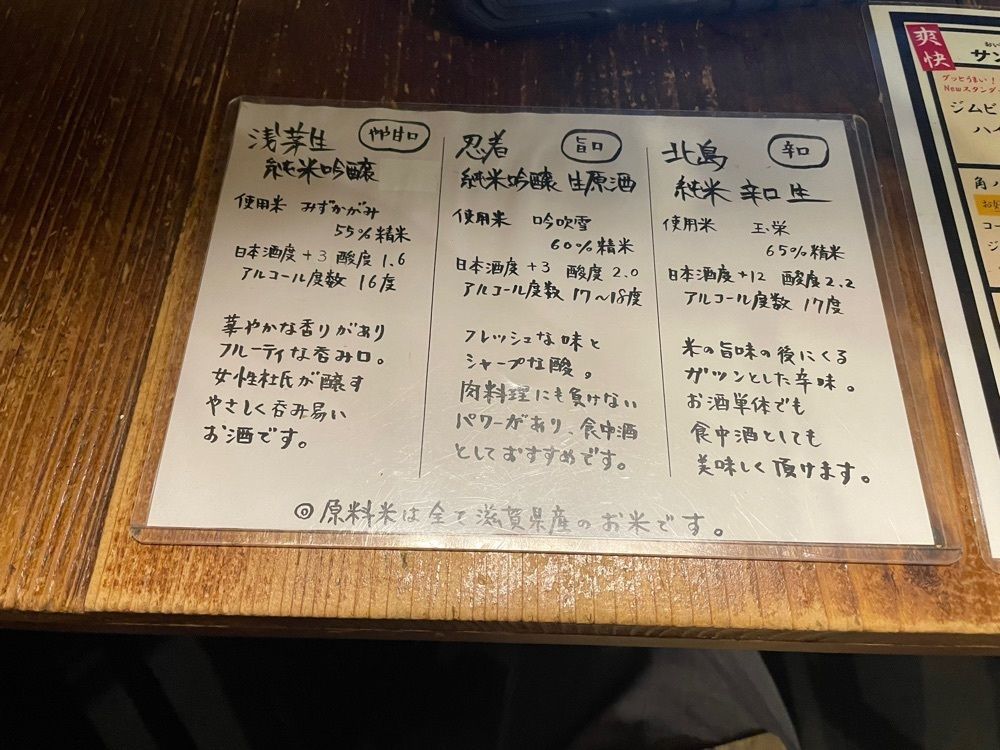 浅茅生 やや甘口
純米吟醸
使用米 みずかがみ
55%精米
日本酒度 +3 酸度 1.6
アルコール度数 16度
華やかな香りがあり
フルーティな呑み口。
女性杜氏が醸す
やさしく呑み易い
お酒です。
忍者 旨口
純米吟醸 生原酒
使用米 吟吹雪
60%精米
日本酒度 +3 酸度 2.0
アルコール度数 17〜18度
フレッシュな味と
シャープな酸。
肉料理にも負けない
パワーがあり、食中酒
としておすすめです。
北島 辛口
純米 辛口 生
使用米 玉栄
65%精米
日本酒度 +12 酸度 2.2
アルコール度数 17度
米の旨味の後にくる
ガツンとした辛味。
お酒単体でも
食中酒としても
美味しく頂けます。
◎原料米は全て滋賀県産のお米です。
爽快
サン
グッとうまい!
Newスタンダ
ジムビ
ハイ
角ハ
コー
ジ